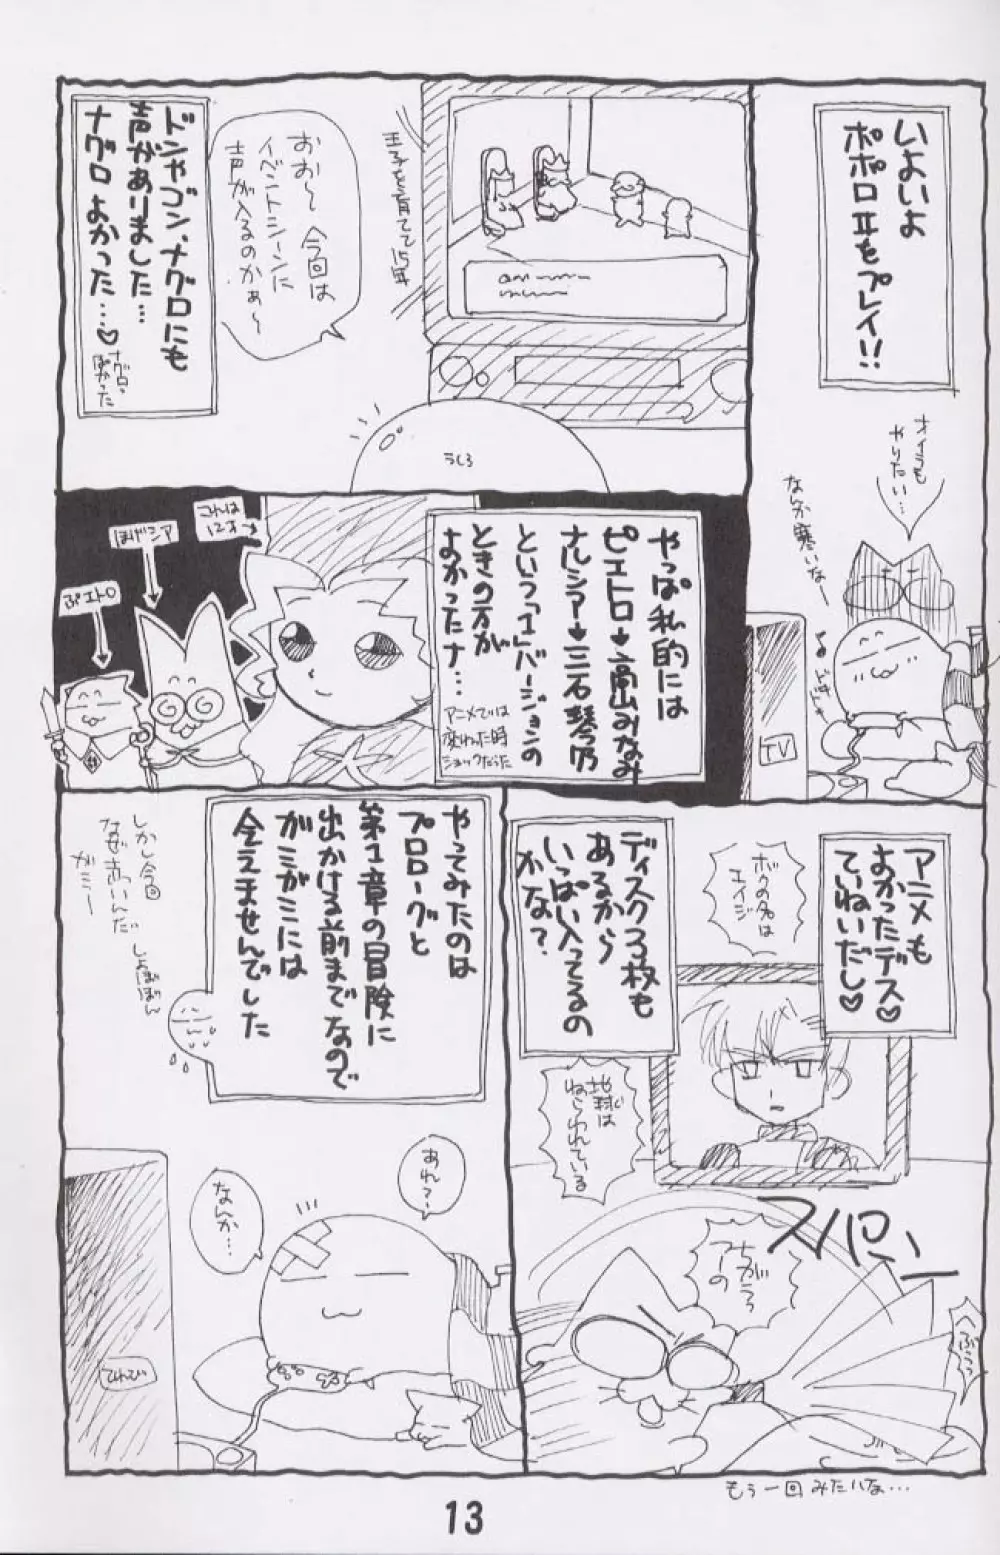 いよいよ
ポポロⅡを
プレイ!!
オイラも
やりたい…
なんか寒いなー
TV
王子を育てて15年
おお〜今回は
イベントシーンに
声が入るのかぁ〜
うしろ
ドンやゴン、ナグロにも
声がありました…
ナグロよかった…♡
ナグロ、
よかった
やっぱ私的には
ピエトロ♥高山みなみ
ナルシア♥三石琴乃
という「Ⅰ」バージョンの
ときの方が
よかったナ…
アニメでは
変わった時
ショックだった
これは
12才
ほげシア
ぷエトロ
アニメも
よかったデス♡
ていねいだし♡
ボクの名は
エイジ
ディスク3枚も
あるから
いっぱい入ってるの
かな?
地球は
ねらわれている
スパーン
ちがうっ
アーの
もう一回みたいな…
やってみたのは
プロローグと
第1章の冒険に
出かける前までなので
ガミガミには
会えませんでした
しかし今回
なぜ赤いんだ
ガミー
しょぼぼん
あれ?
なんか…
てれび
13